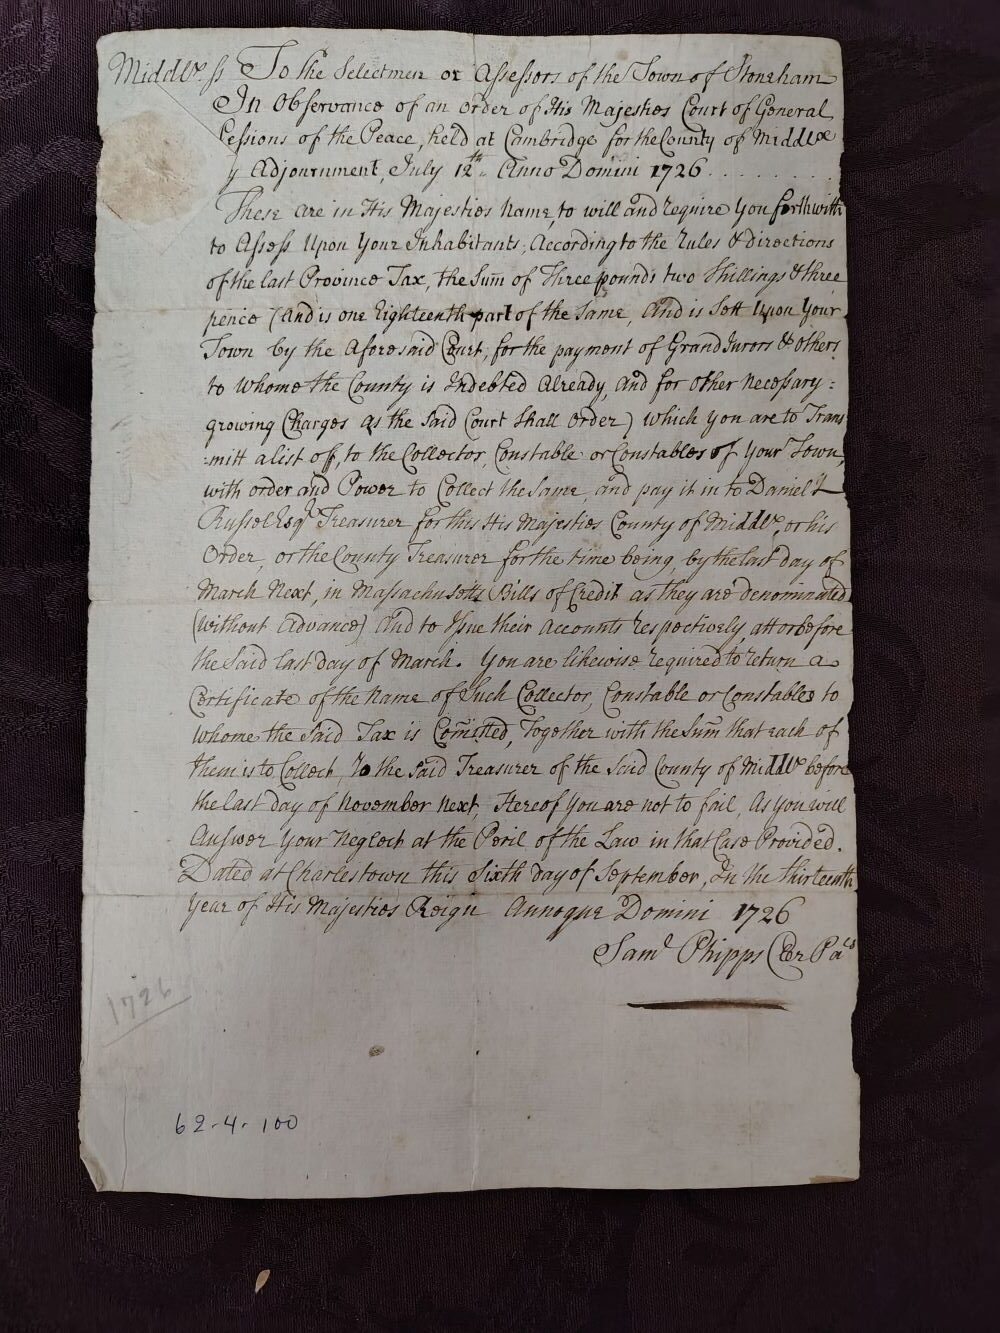 Middlx. ss To the Selectmen or Assessors of the Town of Stoneham
In Observance of an Order of His Majesties Court of General
Sessions of the Peace, held at Cambridge for the County of Middlx
y Adjournment, July 12th. Anno Domini 1726 . . . . . . . . .
These are in His Majesties Name, to will and require You forthwith
to Assess Upon Your Inhabitants, According to the Rules & directions
of the last Province Tax, the Sum of Three pounds two Shillings & three
pence (And is one Eighteenth part of the Same, And is Sett Upon Your
Town by the Aforesaid Court, for the payment of Grand Jurors & others
to whome the County is Indebted Already, and for other necessary :
growing Charges as the said Court Shall Order) which You are to Trans
:mitt a list of, to the Collector, Constable or Constables of Your Town,
with order and Power to Collect the Same, and pay it in to Daniel
Russel Esqr. Treasurer for this His Majesties County of Middlx, or his
Order, or the County Treasurer for the time being, by the last day of
March Next, in Massachusetts Bills of Credit as they are denominated
(without Advance) And to Issue their Accounts respectively, att or before
the Said last day of March. You are likewise required to return a
Certificate of the Name of Such Collector, Constable or Constables to
whome the Said Tax is Comitted, Together with the Sum that each of
them is to Collect, To the Said Treasurer of the Said County of Middlx before
the last day of November next, Hereof You are not to fail, As You will
Answer Your Neglect at the Peril of the Law in that Case Provided.
Dated at Charlestown this Sixth day of September, In the thirteenth
Year of His Majesties Reign Annoque Domini 1726
Saml Phipps Cler Pacs
1726
62-4-100